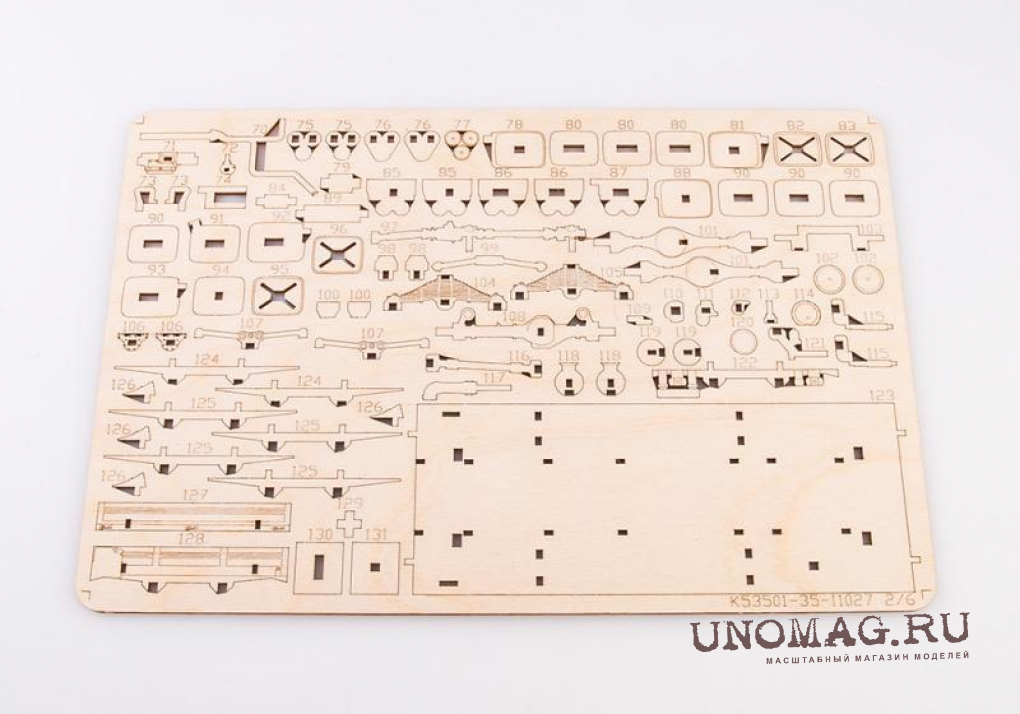 70 75 75 76 76 77 78 80 80 80 81 82 83
71 72 79
73 73 74 84 85 85 86 86 87 88 90 90 90
89
90 91 92 96 97 101 103
98 98 99 101 102 102
93 94 95 100 100 104 105
106 106 107 107 108 109 110 111 112 113 114 115
119 119 120 121
124 116 118 118 122 115
126 124 117 123
125 126
126 125
125
126 125
127 129
128 130 131
K53501-35-11027 2/6
UNOMAG.RU
МАСШТАБНЫЙ МАГАЗИН МОДЕЛЕЙ